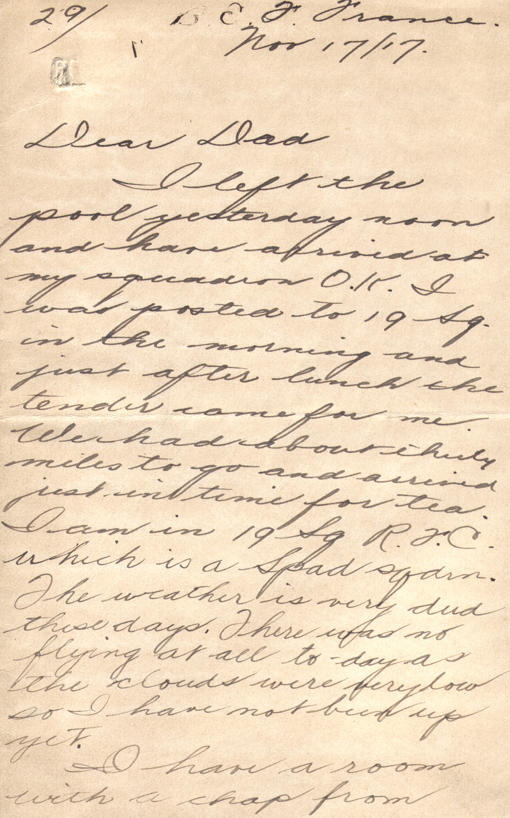 29/ B. E. F. France.
Nov 17/17.
Dear Dad
I left the
pool yesterday noon
and have arrived at
my squadron O.K. I
was posted to 19 Sq.
in the morning and
just after lunch the
tender came for me.
We had about thirty
miles to go and arrived
just in time for tea.
I am in 19 Sq R.F.C.
which is a Spad sqdrn.
The weather is very dud
these days. There was no
flying at all to-day as
the clouds were very low
so I have not been up
yet.
I have a room
with a chap from